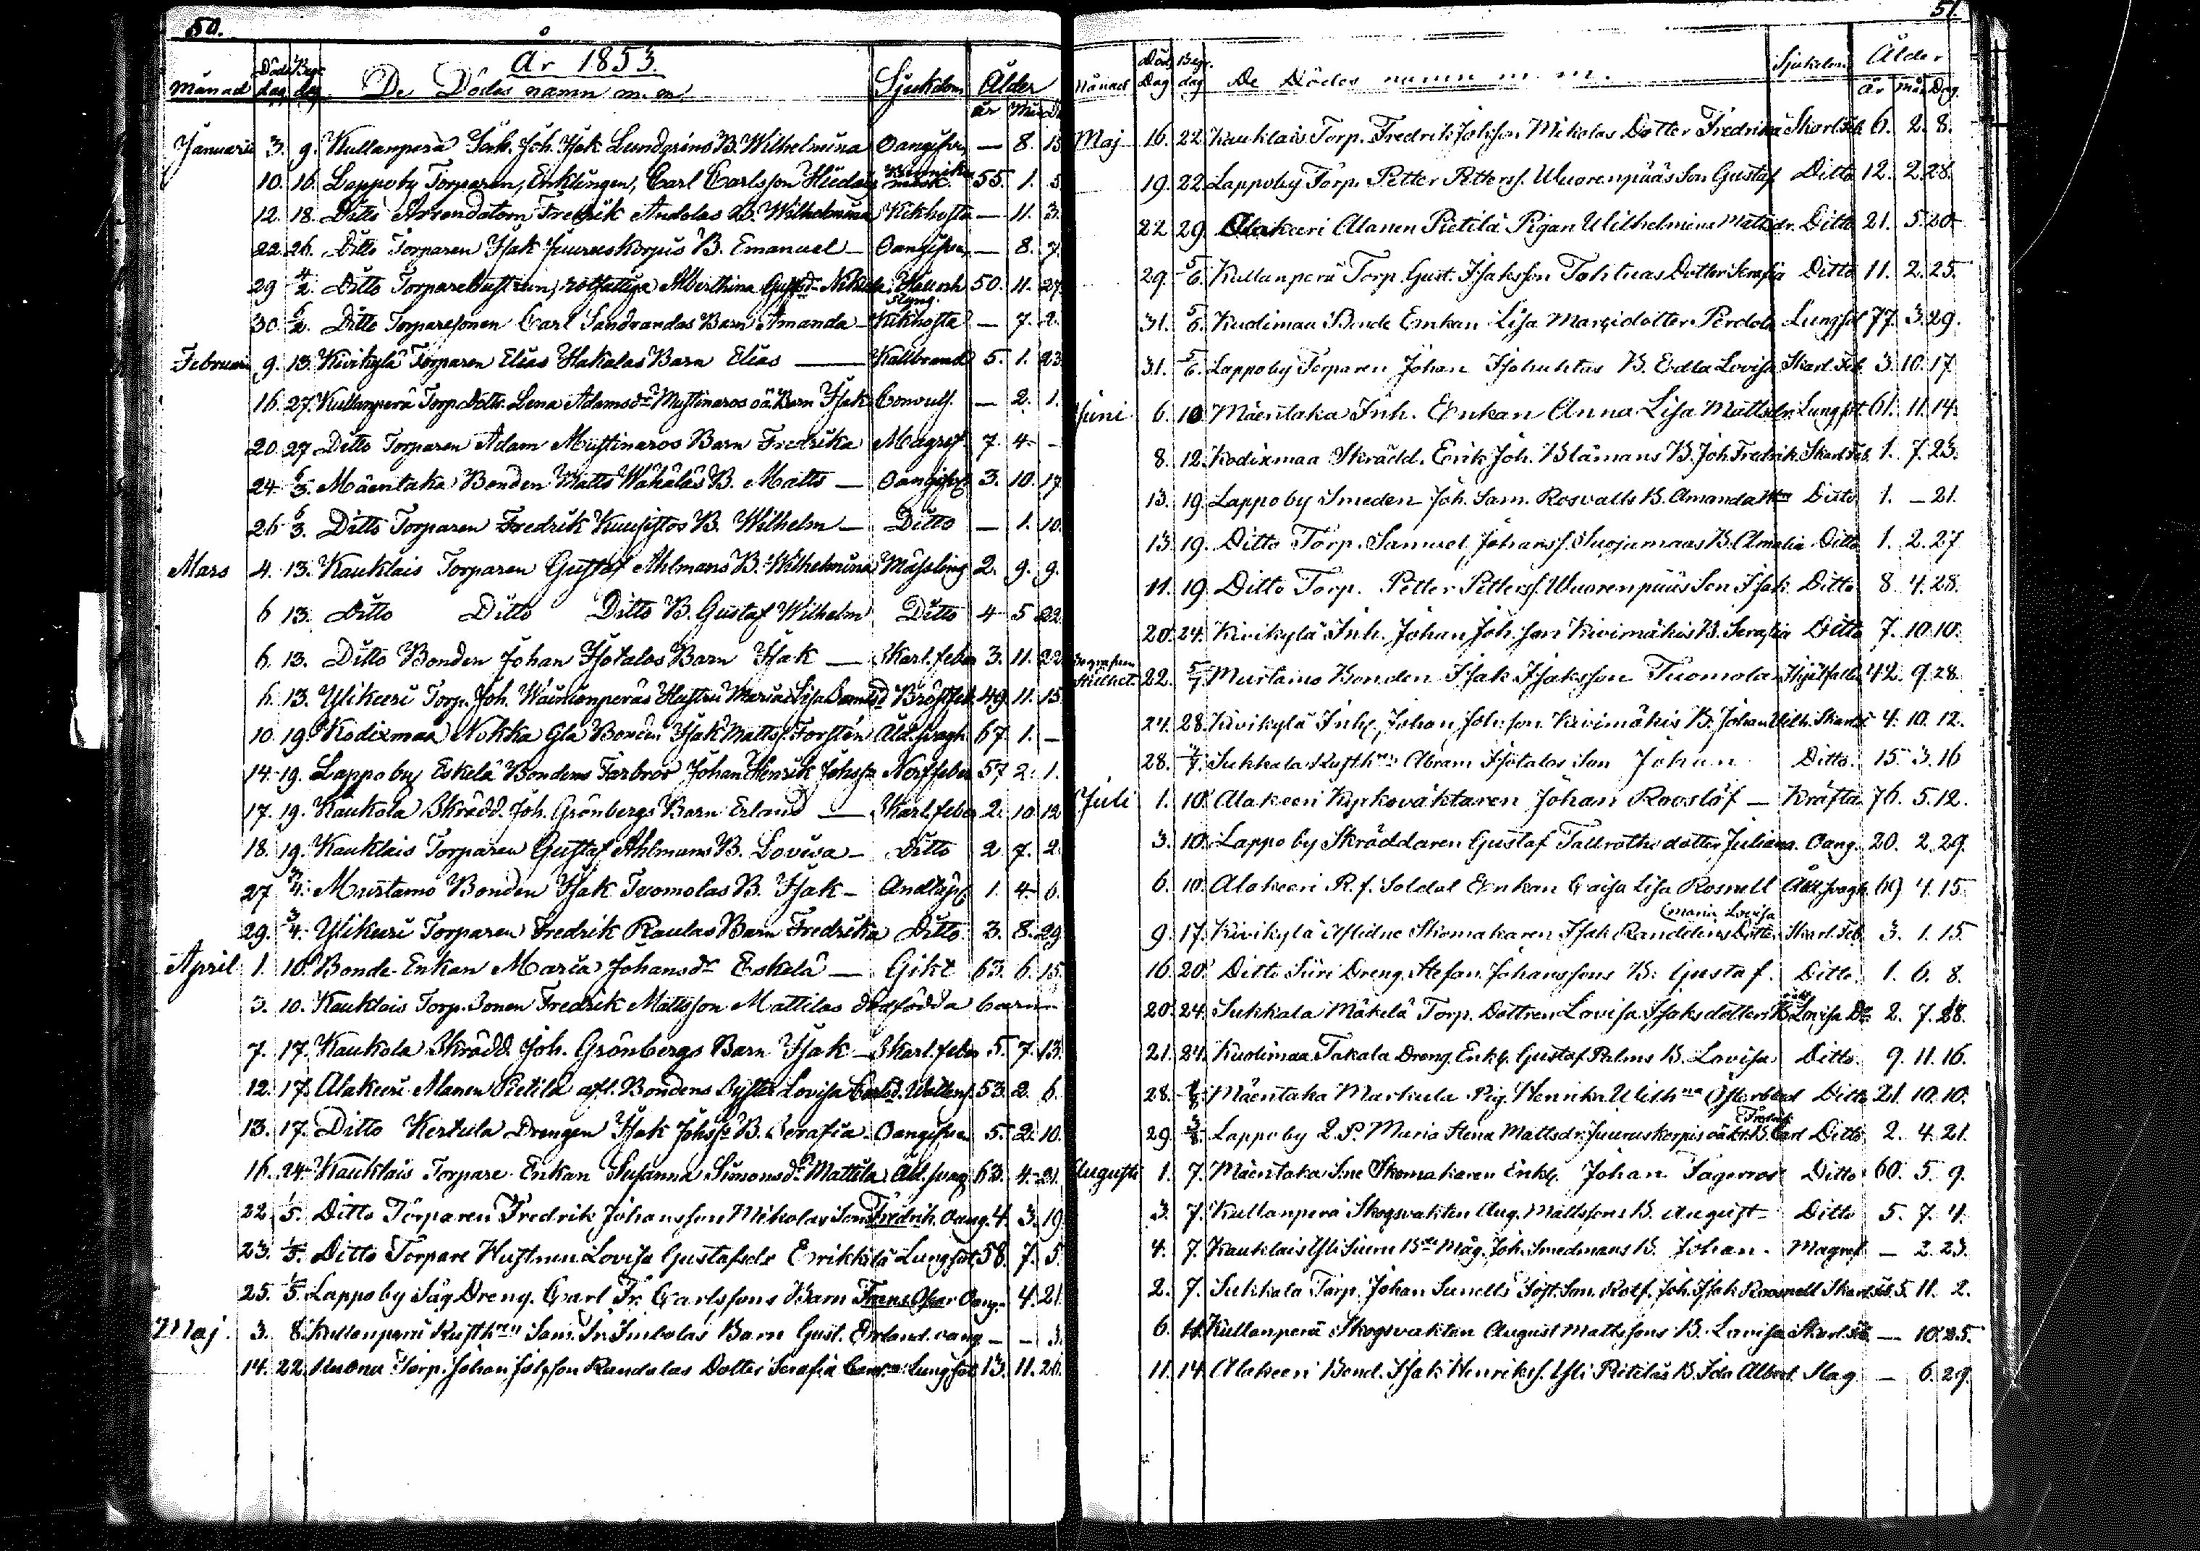 50.
År 1853.
Månad Död dag Begr dag De Dödas namn m.m. Sjukdom Ålder
år Mån D
Januarii 3. 9. Kullanperä Joh. Isak Lundgréns B. Wilhelmina Oangifven — 8. 13
10. 16. Lappoby Torparen, Enklingen, Carl Carlsson 55. 1. 5
12. 18. Ditto Arrendatorn Fredrik Andolas B. Wilhelmina Kikhosta — 11. 3.
22. 26. Ditto Torparen Isak Juuruskorpis B. Emanuel — Oangifven — 8. 7
29 4/2. Ditto Torparehustrun, rotfattiga Alberthina Håll och Styng. 50. 11. 27
30. 6/2. Ditto Torparesonen Carl Sandrandas Barn Amanda Kikhosta — 7. 2.
Februari 9. 13. Kivikylä Torparen Elias Hakalas Barn Elias — Kallbrand 5. 1. 23
16. 27. Kullanperä Torp. Dottr. Lena Adamsdr Mustinaros oä Barn Isak Convuls. — 2. 1.
20. 27 Ditto Torparen Adam Mustinaros Barn Fredrika Magref 7. 4 -
24. 6/3. Mäentaka Bonden Matts Wähäläs B. Matts — Oangifvet 3. 10. 17
26 6/3. Ditto Torparen Fredrik Kuusistos B. Wilhelm — Ditto — 1. 10.
Mars 4. 13. Kauklais Torparen Gustaf Ahlmans B. Wilhelmina Mässling 2. 9. 9.
6 13. Ditto Ditto Ditto B. Gustaf Wilhelm Ditto 4 5 22
6. 13. Ditto Bonden Johan Isotalos Barn Isak — Skarl. feber 3. 11. 22
6. 13. Ylikeeri Torp. Joh. Wäinionperäs Hustru Maria Lisa Bröstfeb 49. 11. 15
10. 19. Kodixmaa Nokka Gla Bonden Isak Mattss. Torstén Åld. svagh 67 1. —
14. 19. Lappoby Eskelä Bondens Farbror Johan Henrik Johss. Nerffeber 57 2. 1.
17. 19. Kaukola Skrädd. Joh. Grönbergs Barn Erland — Skarl. feber 2. 10 12
18. 19. Kauklais Torparen Gustaf Ahlmans B. Lovisa — Ditto 2 7. 2
27 3/4. Murtamo Bonden Isak Tuomolas B. Isak — Andtäpt 1. 4. 6.
29. 3/4. Ylikeeri Torparen Fredrik Raulas Barn Fredrika Ditto 3. 8. 29
April 1. 10. Bonde-Enkan Maria Johansdr Eskelä — Gikt 63. 6. 15.
3. 10. Kauklais Torp. Sonen Fredrik Mattsson Mattilas dödfödda barn —
7. 17. Kaukola Skrädd. Joh. Grönbergs Barn Isak — Skarl. feber 5. 7. 13.
12. 17. Alakeeri Alanen Pietilä afl. Bondens Syster Lovisa 53. 2. 6.
13. 17. Ditto Kertula Drengen Isak Johss. B. Serafia. Oangifven 5. 2. 10.
16. 24. Kauklais Torpare-Enkan Susanna Simonsdr Mattila Åld. svag 63. 4. 21.
22 1/5. Ditto Torparen Fredrik Johansson Mikolas Son Fredrik. Oang. 4. 3. 19
23. 1/5. Ditto Torpare Hustrun Lovisa Gustafsdr Erikkilä Lungsot 58. 7. 5.
25. 1/5. Lappoby Säg Dreng. Carl Fr. Carlssons Barn Frans Oscar Oang. — 4. 21.
Maj. 3. 8. Kullanperä Sam. Fr. Barn Gust. Erland. oang — — 3.
14. 22. Torp. Johan Johsson Randalas Dotter Serafia Lungsot 13. 11. 26.
51.
Månad Död Dag Begr. dag De Dödas namn m. m. Sjukdom Ålder
år mån Dag.
Maj 16. 22. Kauklais Torp. Fredrik Johsson Mikolas Dotter Fredrika Skarl. feb 6. 2. 8.
19. 22. Lappoby Torp. Petter Petterss. Wuorenpääs Son Gustaf Ditto 12. 2. 28.
22 29. Alakeeri Alanen Pietilä Pigan Wilhelmina Mattsdr. Ditto 21. 5. 20.
29. 5/6. Kullanperä Torp. Gust. Isaksson Dotter Serafia Ditto 11. 2. 25.
31. 5/6. Kuolimaa Bonde Enkan Lisa Dotter Perdola Lungsot 77. 3. 29.
31. 5/6. Lappoby Torparen Johan Isohuhtas B. Edla Lovisa Skarl. Feb. 3. 10. 17.
Juni 6. 10 Mäentaka Inh. Enkan Anna Lisa Mattsdr. Lungsot 61. 11. 14.
8. 12. Kodixmaa Skrädd. Erik Joh. Blåmans B. Joh. Fredrik. Skarl. Feb. 1. 7. 23.
13. 19. Lappoby Smeden Joh. Sam. Rosvalls B. Amanda Ditto 1. — 21.
13. 19. Ditto Torp. Samuel Johanss. Suojamaas B. Amalia Ditto 1. 2. 27
11. 19. Ditto Torp. Petter Petterss. Wuorenpääs Son Isak Ditto 8. 4. 28.
20. 24. Kivikylä Inh. Johan Joh. son Kivimäkis B. Serafia Ditto 7. 10. 10.
22. 5/7 Murtamo Bonden Isak Isaksson Tuomola 42. 9. 28.
24. 28. Kivikylä Inh. Johan Joh. son Kivimäkis B. Johan Wilh. Skarl. 4. 10. 12.
28. 3/7. Sukkala Abram Isotalos Son Johan Ditto. 15. 3. 16
Juli 1. 10. Alakeeri Kyrkoväktaren Johan Rooslöf — Kräfta 76. 5. 12.
3. 10. Lappoby Skräddaren Gustaf Tallroths dotter Juliana. Oang. 20. 2. 29.
6. 10. Alakeeri R. f. Soldat Enkan Caisa Lisa Rosnell Åld. svagh. 69 4. 15.
(Maria Lovisa
9. 17. Kivikylä Skomakaren Isak Randelins Dotter Skarl. Feb. 3. 1. 15.
16. 20. Ditto Siiri Dreng. Stefan Johanssons B. Gustaf. Ditto. 1. 6. 8.
20. 24. Sukkala Mäkelä Torp. Dottren Lovisa Isaksdotters B. Lovisa Do 2. 7. 28.
21. 24. Kuolimaa Takala Dreng. Enkl. Gustaf Palms B. Lovisa Ditto. 9. 11. 16.
28. Mäentaka Markula Pig. Henrika Wilhna Österblad Ditto 21. 10. 10.
Fredrik
29. Lappoby Q. P. Maria Lena Mattsdr. Juuruskorpis oäkt. B. Carl Ditto 2. 4. 21.
Augusti 1. 7. Mäentaka Skomakaren Enkl. Johan Fagerros Ditto 60. 5. 9.
3. 7. Kullanperä Skogsvakten Aug. Mattssons B. August — Ditto 5. 7. 4.
4. 7. Kauklais Måg. Joh. Smedmans B. Johan. Magref — 2. 23.
2. 7. Sukkala Torp. Johan Sunells Joh. Isak Roosnell Skarl. feb. 5. 11. 2.
6. Kullanperä Skogsvakten August Mattssons B. Lovisa Skarl. feb. — 10. 25.
11. 14. Alakeeri Bond. Isak Henrikss. Yli Pietiläs B. Ida Albert. Slag. — 6. 29.